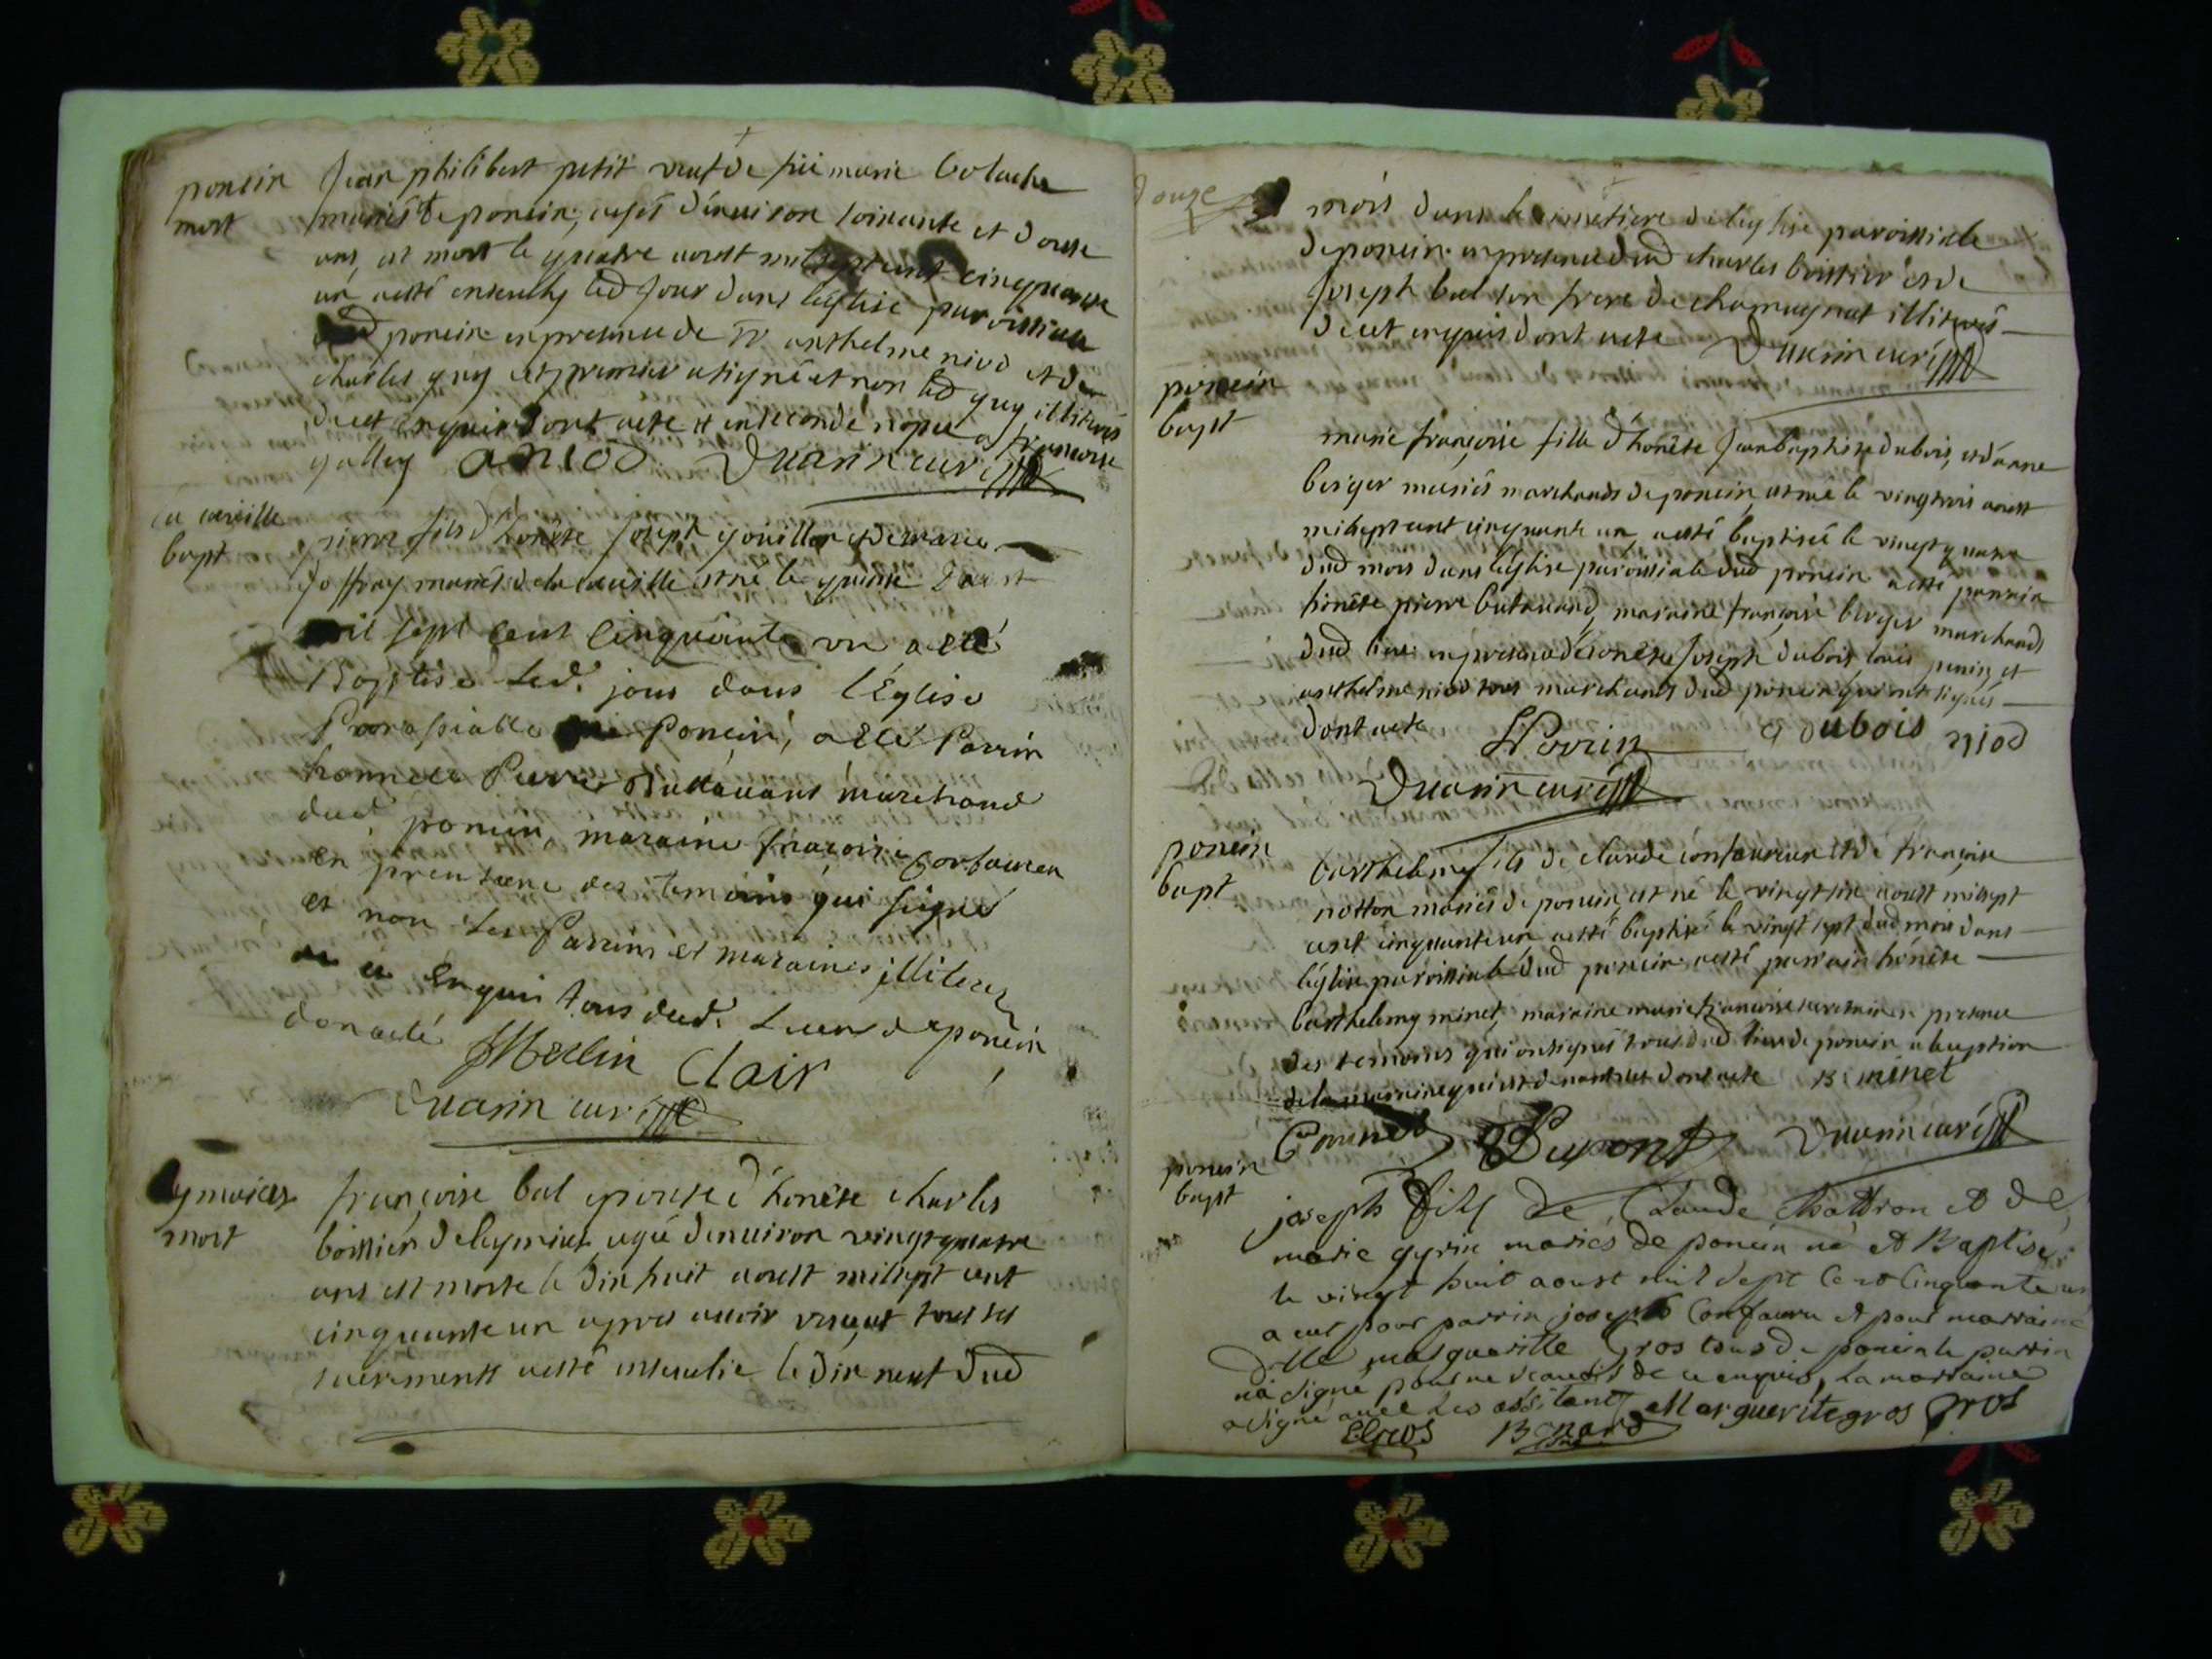 poncin
mort
Jean philibert petit veuf de feü marie
mariés de poncin, agés d'énviron soixante et douse
ans, est mort le quatre aoust mil sept cent cinquante
un aesté enseuely led jour dans l'église paroissialle
dud poncin en presence de Sr anthelme niod et de
charles guy le premier a signé et non led guy illiterés
de cet enquis dont acte et en seconde nopce a francoise
galley aniod Duarin curé
la cueille
bapt
pierre fils d'honéte joseph goüillon et de marie
joffray mariés de la cueille est né le quinse d'aoust
mil sept cent cinquante un a eté
Baptisé Led. jour dans l'Eglise
Paroissialle de Poncin, a eté Parrin
honnete Pierre Butavant marchand
dud poncin, maraine francoise Confavreu
en presence des temoins qui signé
et non les Parrins et maraines illiterez
de ce enquis tous dud. Lieu de poncin
don acte Merlin Clair
Duarin curé
leymiat
mort
françoise bal epouse d'honéte charles
boissier de leymiat agé denuiron vingt quatre
ans est morte le dix huit aoust mil sept cent
cinquante un apres auoir reçeut tous ses
sacrements aesté enseuelie le dix neuf dud
douze
mois dans le cimetiere de l'eglise paroissialle
de poncin en presence dud charles boissier et de
joseph bal son frere de chamagnat illiterés
de cet enquis dont acte Duarin curé
poncin
bapt
marie françoise fille d'honéte jean baptiste dubois, et d'anne
berger mariés marchands de poncin, est née le vingt trois aoust
mil sept cent cinquante un aesté baptisée le vingt quatre
dud mois dans l'église paroissiale dud poncin a esté parrain
honéte pierre butavand, maraine françoise berger marchands
dud lieu en presence d'honétes joseph dubois, louis perrin et
anthelme niod tous marchands dud poncin qui ont signés
dont acte LPerrin dubois niod
Duarin curé
poncin
bapt
barthelemy fils de claude confavreux et de françoise
notton mariés de poncin, est né le vingt six aoust mil sept
cent cinquante un aesté baptisé le vingt sept dud mois dans
l'église paroissiale dud poncin aesté parrain honéte
barthelemy minet, maraine marie francoise en presence
des temoins qui on signés tous dud lieu de poncin a l'exeption
de la marraine dont acte B minet
Dupont Duarin curé
poncin
bapt
joseph fils de Claude Chattron et de
marie gyrin mariés de poncin né et Baptisé
le vingt huit aoust mil sept Cent Cinquante un
a eut pour parrin joseph Confavru et pour marraine
dlle margueritte Gros tous de poncin le parrin
n'a signé pour ne scavoir de ce enquis, La marraine
a signé avec les assistants Marguerite gros gros
Benard